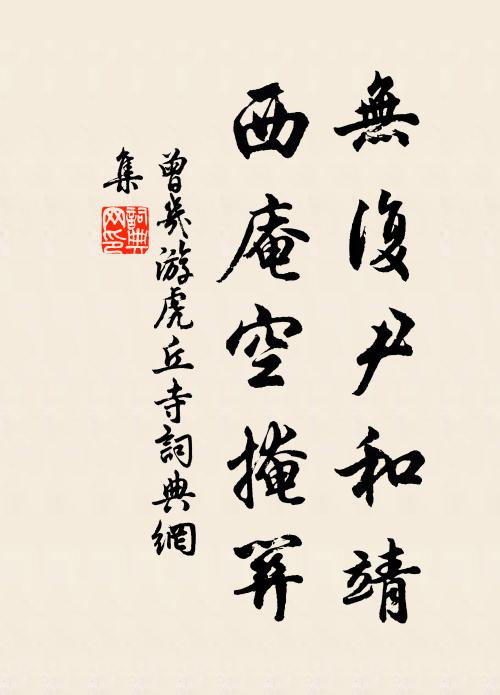 無復尹和靖
西庵空掩關
曾幾游虎丘寺詞典網
集
詞典
网印